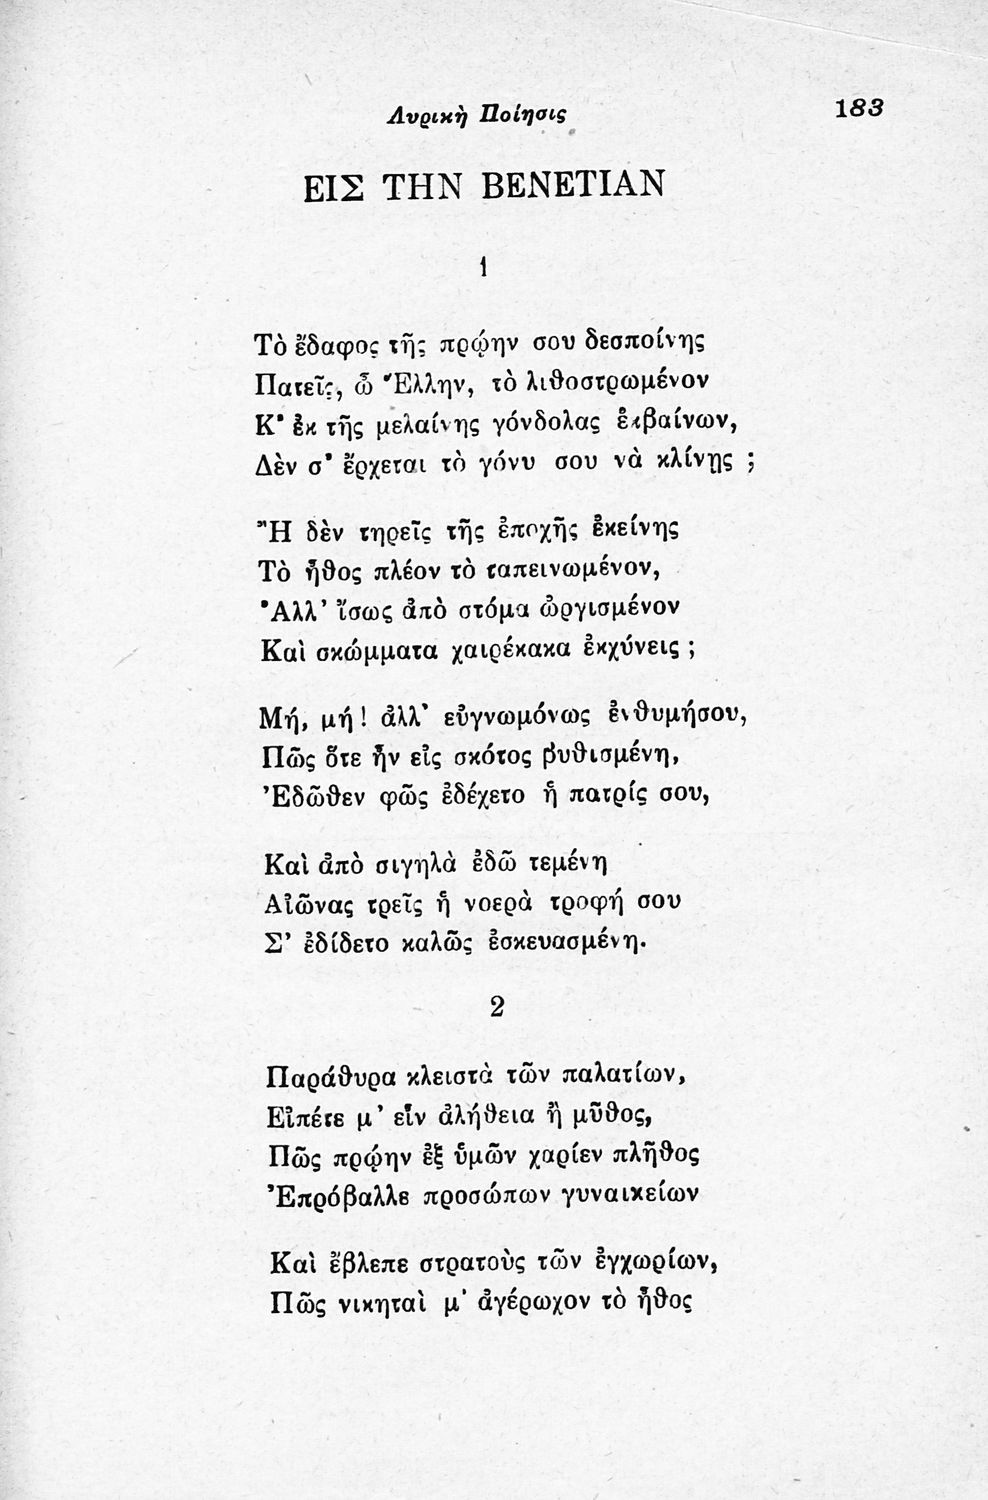 Λυρικὴ Ποίησις 183
ΕΙΣ ΤΗΝ ΒΕΝΕΤΙΑΝ
1
Τὸ ἔδαφος τῆς πρῴην σου δεσποίνης
Πατεῖς, ὦ Ἕλλην, τὸ λιθοστρωμένον
Κ' ἐκ τῆς μελαίνης γόνδολας ἐκβαίνων,
Δὲν σ' ἔρχεται τὸ γόνυ σου νὰ κλίνῃς ;
Ἢ δὲν τηρεῖς τῆς ἐποχῆς ἐκείνης
Τὸ ἦθος πλέον τὸ ταπεινωμένον,
Ἀλλ' ἴσως ἀπὸ στόμα ὠργισμένον
Καὶ σκώμματα χαιρέκακα ἐκχύνεις ;
Μή, μή! ἀλλ' εὐγνωμόνως ἐνθυμήσου,
Πῶς ὅτε ἦν εἰς σκότος βυθισμένη,
Ἐδῶθεν φῶς ἐδέχετο ἡ πατρίς σου,
Καὶ ἀπὸ σιγηλὰ ἐδῶ τεμένη
Αἰῶνας τρεῖς ἡ νοερὰ τροφή σου
Σ' ἐδίδετο καλῶς ἐσκευασμένη.
2
Παράθυρα κλειστὰ τῶν παλατίων,
Εἰπέτε μ' εἶν ἀλήθεια ἢ μῦθος,
Πῶς πρῴην ἐξ ὑμῶν χαρίεν πλῆθος
Ἐπρόβαλλε προσώπων γυναικείων
Καὶ ἔβλεπε στρατοὺς τῶν ἐγχωρίων,
Πῶς νικηταὶ μ' ἀγέρωχον τὸ ἦθος